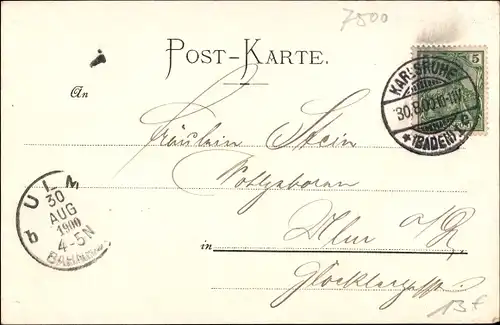 7500
POST-KARTE.
5
KARLSRUHE
30.8.00
* (BADEN)
An
Fräulein Stein
Wohlgeboren
ULM
30
AUG
1900
4-5N
b
in Ulm a/D.
Glöcklergasse